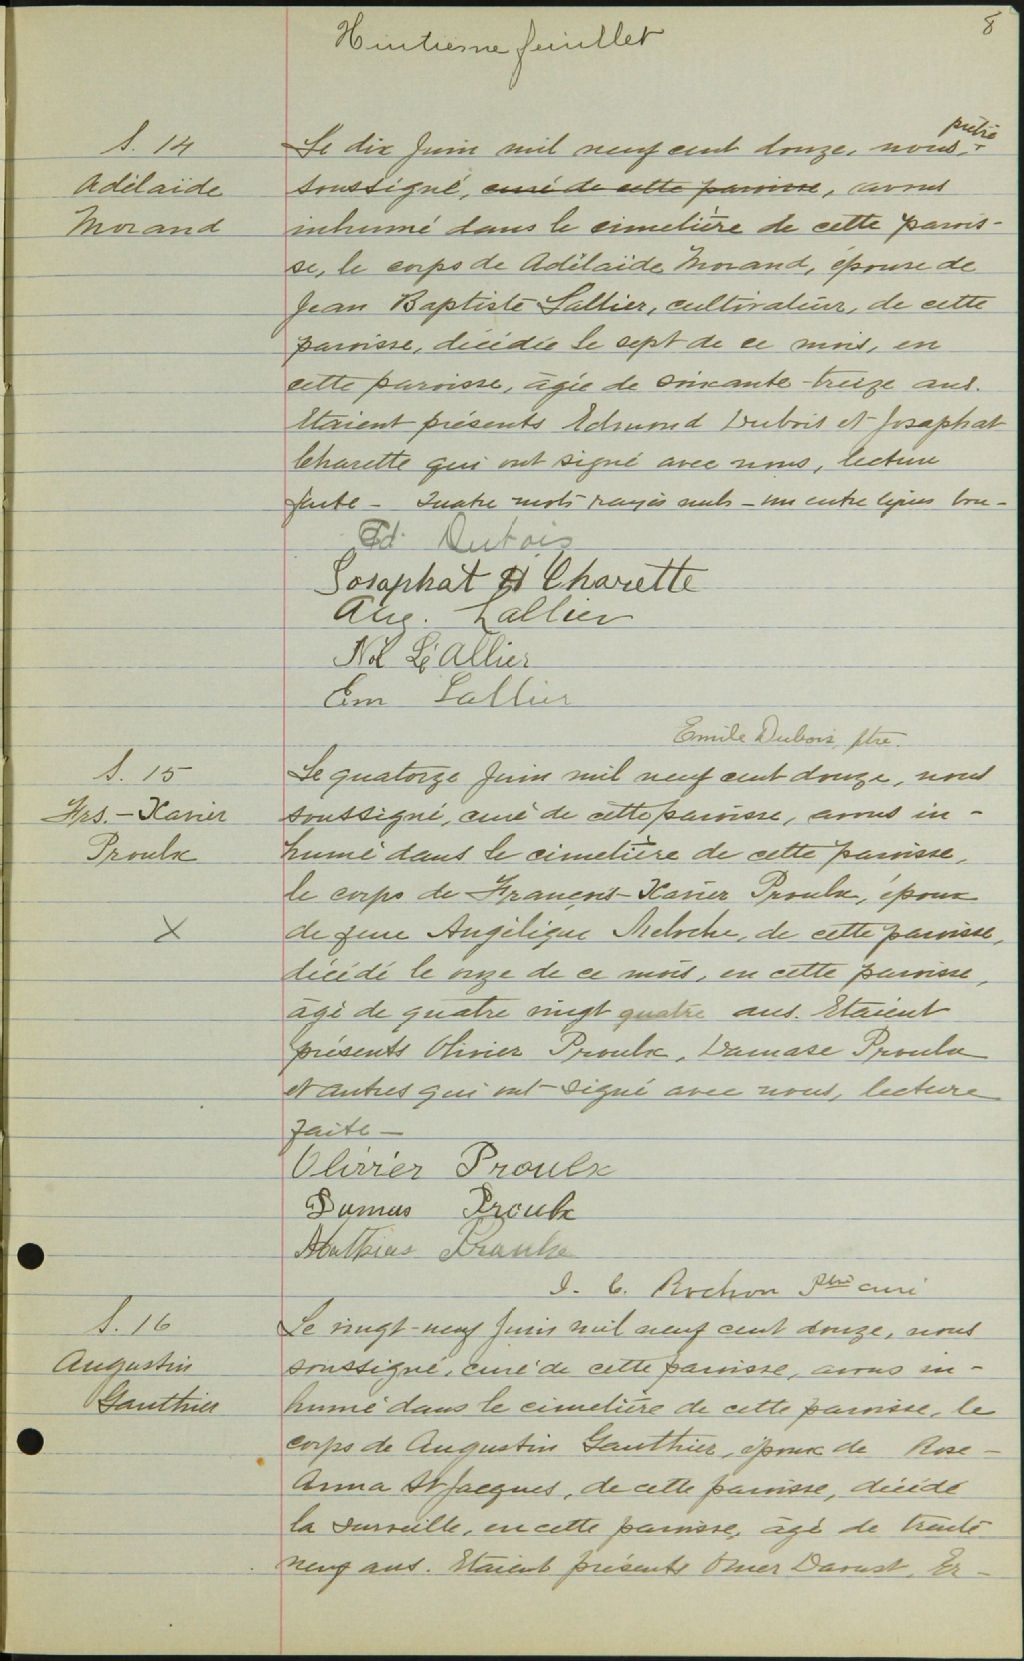 Huitième feuillet
8
S. 14
Adélaïde
Morand
Le dix Juin mil neuf cent douze, nous, prêtre
soussigné, curé de cette paroisse, avons
inhumé dans le cimetière de cette parois-
se, le corps de Adélaïde Morand, épouse de
Jean Baptiste Lallier, cultivateur, de cette
paroisse, décédée le sept de ce mois, en
cette paroisse, âgée de soixante-treize ans.
Etaient présents Edmond Dubois et Josaphat
Charette qui ont signé avec nous, lecture
faite - Quatre mots rayés nuls - un entre lignes bon -
Ed. Dubois
Josaphat H Charette
Aug. Lallier
Nol L'Allier
Em Lallier
Emile Dubois, ptre.
S. 15
Frs.-Xavier
Proulx
X
Le quatorze Juin mil neuf cent douze, nous
soussigné, curé de cette paroisse, avons in-
humé dans le cimetière de cette paroisse,
le corps de François-Xavier Proulx, époux
de feue Angélique Meloche, de cette paroisse,
décédé le onze de ce mois, en cette paroisse,
âgé de quatre vingt quatre ans. Etaient
présents Olivier Proulx, Damase Proulx
et autres qui ont signé avec nous, lecture
faite -
Olivier Proulx
Damas Proulx
Mathias Proulx
J. C. Rochon Ptre curé
S. 16
Augustin
Gauthier
Le vingt-neuf Juin mil neuf cent douze, nous
soussigné, curé de cette paroisse, avons in-
humé dans le cimetière de cette paroisse, le
corps de Augustin Gauthier, époux de Rose-
Anna St Jacques, de cette paroisse, décédé
la surveille, en cette paroisse, âgé de trente
neuf ans. Etaient présents Omer Daoust, Er-